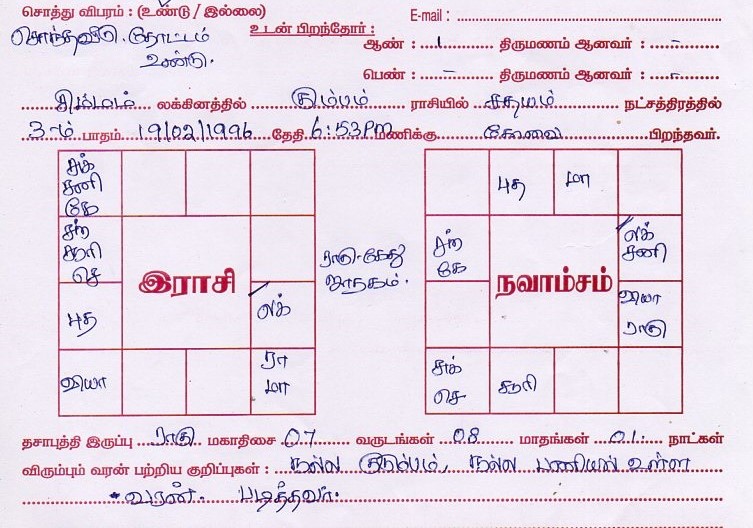 சொத்து விபரம் : (உண்டு / இல்லை)
E-mail :
சொந்தவீடு. தோட்டம்
உண்டு.
உடன் பிறந்தோர் :
ஆண் : 1 திருமணம் ஆனவர் : -
பெண் : - திருமணம் ஆனவர் : -
சிம்மம் லக்கினத்தில் கும்பம் ராசியில் சதயம் நட்சத்திரத்தில்
3-ம் பாதம் 19/02/1996 தேதி 6:53PM மணிக்கு கோவை பிறந்தவர்.
சுக்
சனி
கே
சந்
சூரி
செ
புத
வியா
இராசி
லக்
ரா
மா
ராகு-கேது
ஜாதகம்.
புத
மா
சந்
கே
நவாம்சம்
லக்
சனி
வியா
ராகு
சுக்
செ
சூரி
தசாபுத்தி இருப்பு ராகு மகாதிசை 07 வருடங்கள் 08 மாதங்கள் 01 நாட்கள்
விரும்பும் வரன் பற்றிய குறிப்புகள் : நல்ல குடும்பம், நல்ல பணியில் உள்ள
வரண். படித்தவர்.